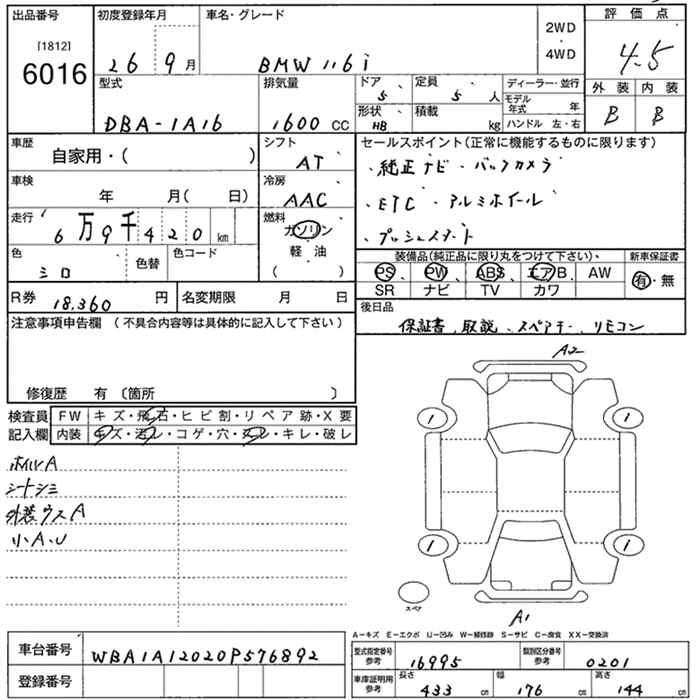 出品番号 初度登録年月 車名・グレード 評価点
[1812]
6016
26 9月 BMW 116i
2WD
・
4WD
4.5
型式 排気量 ドア 定員 ディーラー・並行 外装 内装
DBA-1A16 1600 CC
5 5人
モデル年式 年
形状 HB 積載 kg ハンドル 左・右
B B
車歴 自家用・( )
シフト AT
セールスポイント(正常に機能するものに限ります)
・純正ナビ・バックカメラ
・ETC・アルミホイール
・プッシュスタート
車検 年 月( 日)
冷房 AAC
走行 6万9千420km
燃料 ガソリン
軽油
( )
色 シロ 色替 色コード
装備品(純正品に限り丸をつけて下さい)、 新車保証書
PS PW ABS エアB. AW 有・無
SR ナビ TV カワ
R券 18,360円 名変期限 月 日
後日品
保証書、取説、スペアキー、リモコン
注意事項申告欄(不具合内容等は具体的に記入して下さい)
修復歴 有 〔箇所 〕
検査員 FW キズ・飛石・ヒビ割・リペア跡・X要
記入欄 内装 キズ・汚レ・コゲ・穴・スレ・キレ・破レ
ホイルA
シートシミ
外装ウスA
小A.U
A2
1 1
1 1
スペア
A1
A-キズ E-エクボ U-凹み W-補修跡 S-サビ C-腐食 XX-交換済
車台番号 WBA1A12020P576892
登録番号
型式指定番号 参考 16995 類別区分番号 参考 0201
車庫証明用 参考 長さ 433cm 幅 176cm 高さ 144cm